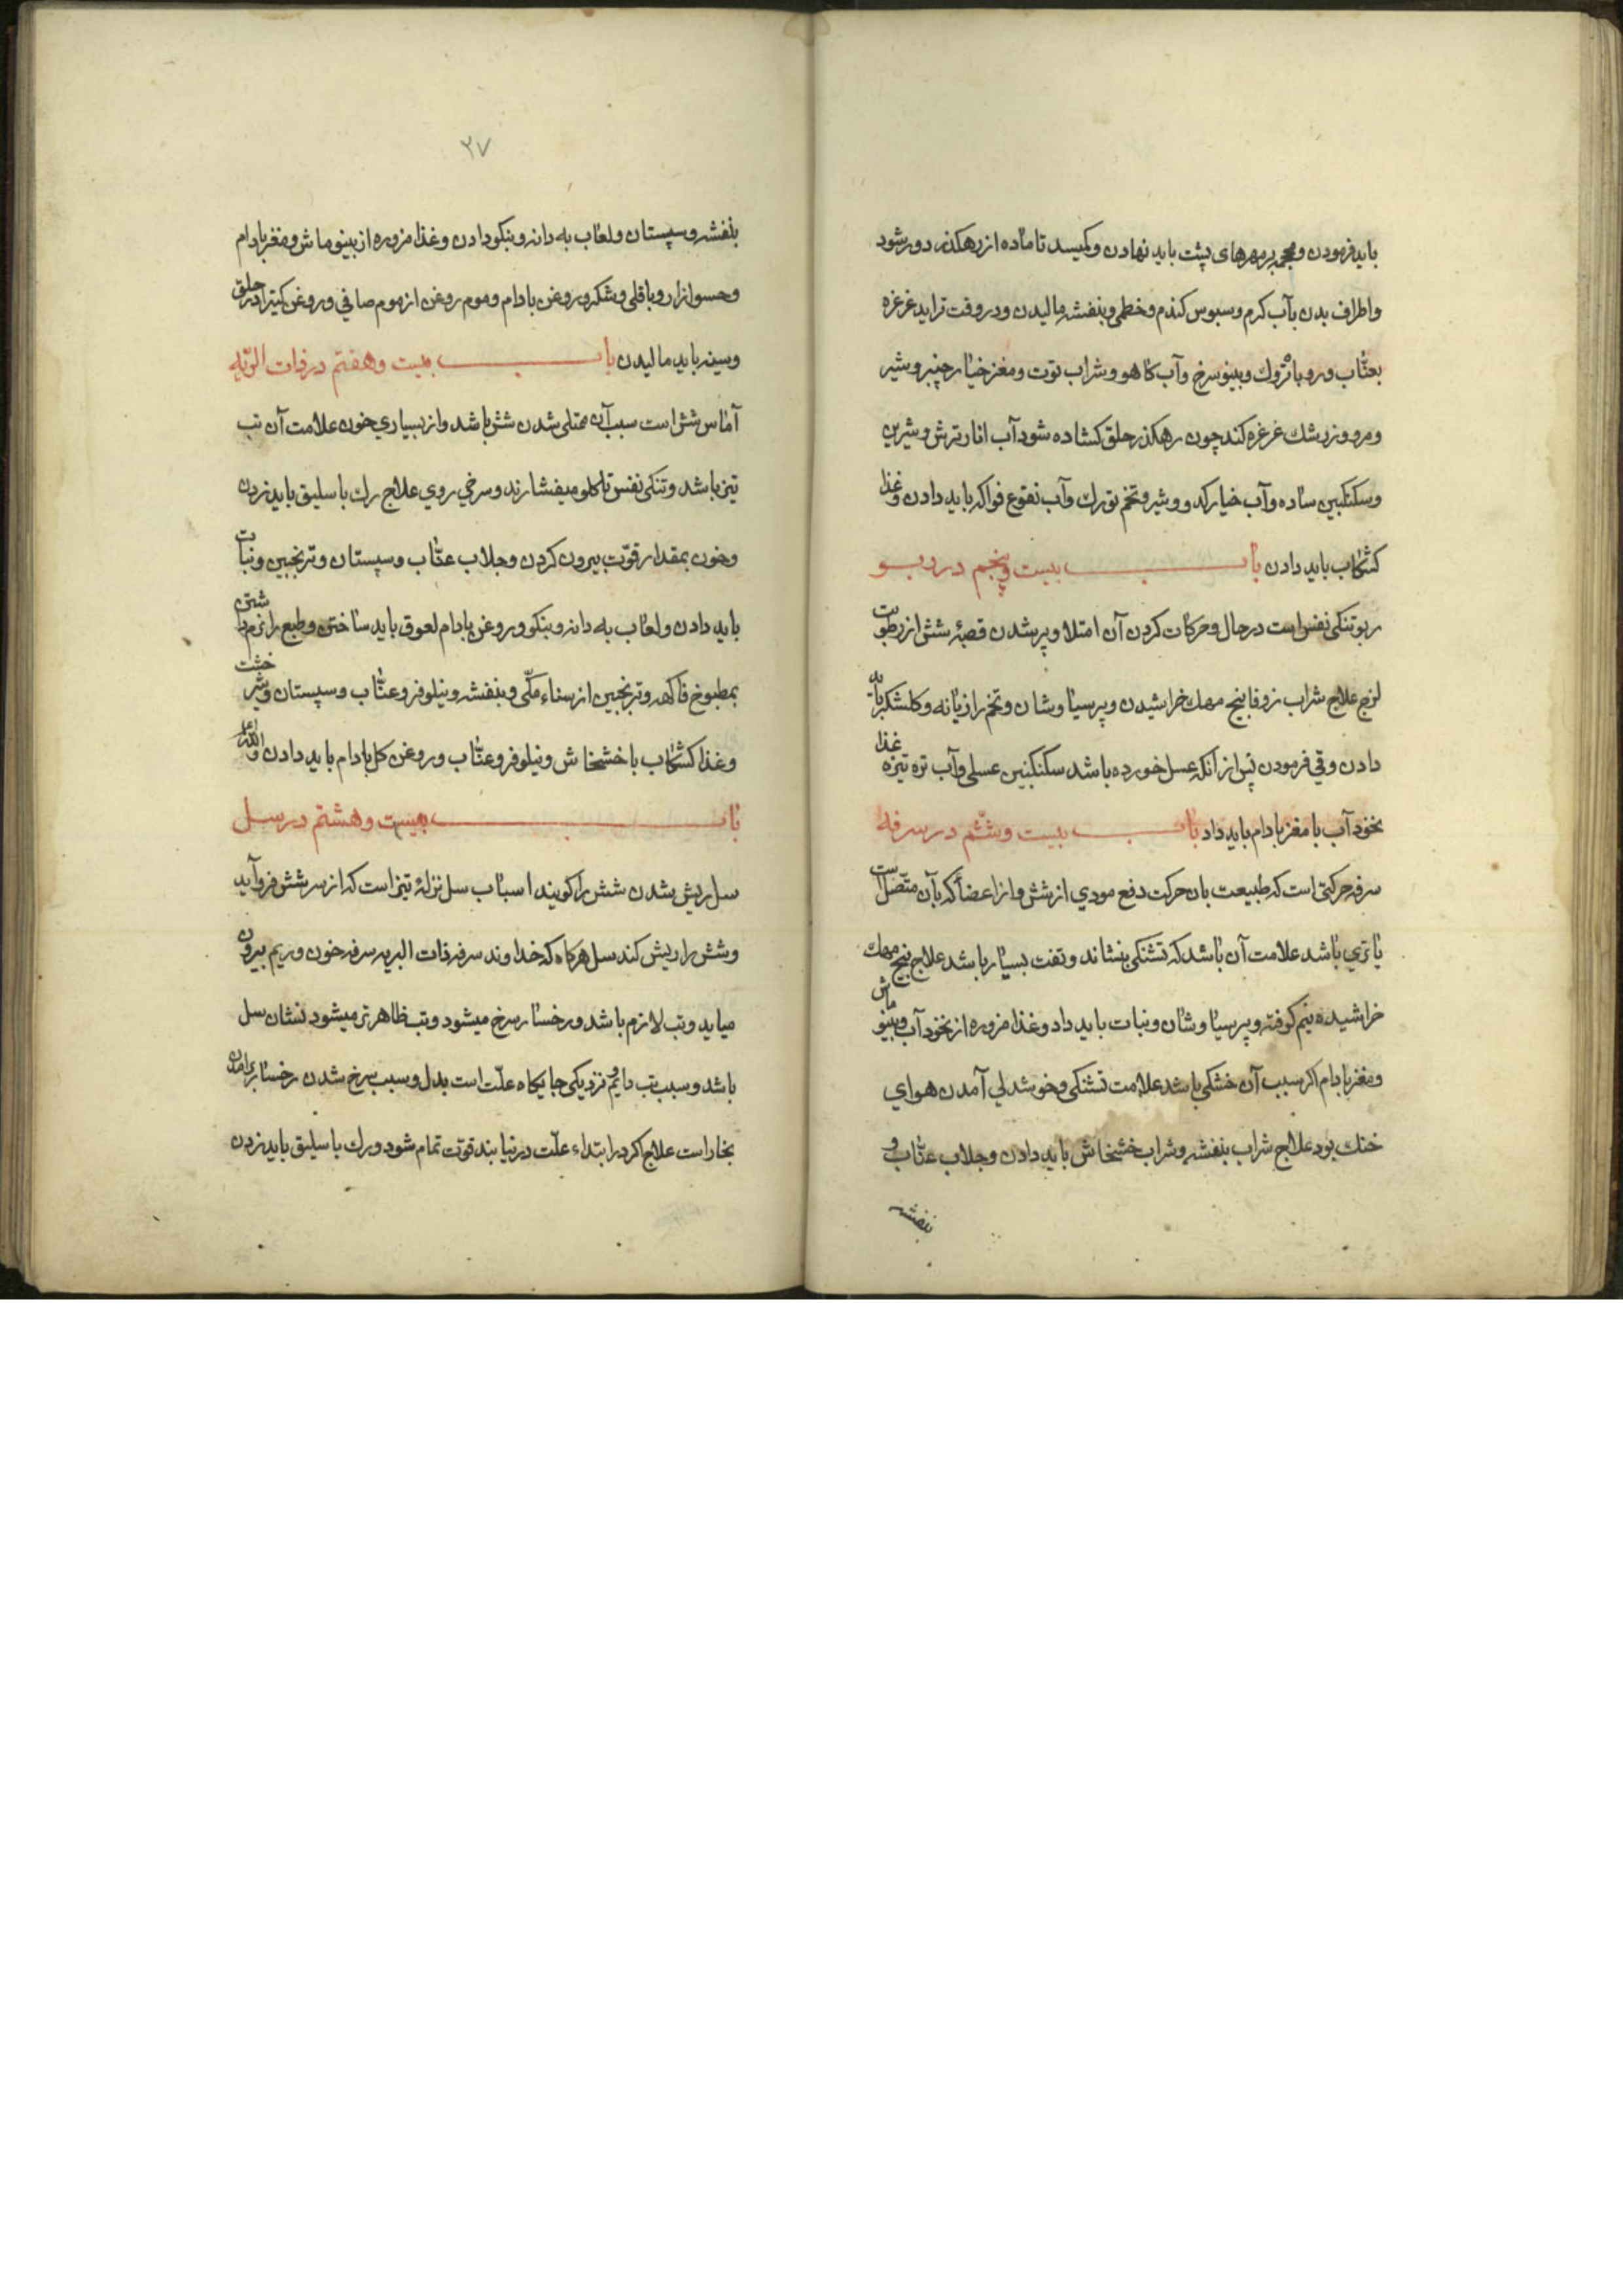 باید فرمودن و محجمه بر مهرهای پشت باید نهادن و کمیسد تا ماده از رهکذر دور شود
واطراف بدن بآب کرم و سبوس کندم و خطمی و بنفشه مالیدن و در وقت تزاید غرغره
بعنّاب و روباتژوك و بینو سرخ وآب کاهو و شراب توت و مغز خیارچنبر و شیر
ومرو وزرشك غرغره کند چون رهکذر حلق کشاده شود آب انار ترش و شیرین
وسکنکبین ساده وآب خیار کدو و شیر و تخم تورك وآب نقوع فواکه باید دادن وغذا
کشکاب باید دادن باب بیست وپنجم در ربو
ربو تنکی نفس است در حال و حرکات کردن آن امتلا و پر شدن قصبهٔ شش از رطوبت
لزج علاج شراب زوفا بیخ مهك خراشیدن و پرسیاوشان و تخم رازیانه و کلشکر باید
دادن وقی فرمودن پس از آنکه عسل خورده باشد سکنکنبین عسلی وآب تره تیزه غذا
نخود آب با مغز بادام باید داد باب بیست وششم در سرفه
سرفه حرکتی است که طبیعت بان حرکت دفع مودي از شش و از اعضا که بآن متّصل است
یا تري باشد علامت آن باشد که تشنکی بنشاند و تفت بسیار باشد علاج بیخ مهك
خراشیده نیم کوفته و پرسیاوشان و نبات باید داد وغذا مزوره از نخود آب وبینو ماش
ومغز بادام اکر سبب آن خشکی باشد علامت تشنکی وخوشدلي آمدن هواي
خنك بود علاج شراب بنفشه و شراب خشخاش باید دادن وجلاب عنّاب و
بنفشه
۳۷
بنفشه و سپستان ولعاب به دانه و بنکو دادن وغذا مزوره از بینو ماش و مغز بادام
وحسو از ارو باقلی و شکر و روغن بادام وموم روغن از موم صافي و روغن کتیرا در حلق
وسینه باید مالیدن باب بیست وهفتم در ذات الرّیه
آماس شش است سبب آن ممتلی شدن شش باشد واز بسیاري خون علامت آن تب
تیز باشد وتنکی نفس تا کلو میفشارند وسرخي روي علاج رك باسلیق باید زدن
وخون بمقدار قوّت بیرون کردن وجلاب عنّاب و سپستان و ترنجبین ونبات
باید دادن ولعاب به دانه و بنکو و روغن بادام لعوق باید ساختن وطبع را نرم داشتن
بمطبوخ فاکهه و ترنجبین از سناء مکّی و بنفشه و نیلوفر وعنّاب و سپستان وشیر خشت
وغذا کشکاب با خشخاش و نیلوفر وعنّاب و روغن کل بادام باید دادن والله اعلم
باب بیست وهشتم در سل
سل ریش شدن شش را کویند اسباب سل نزلهٔ تیز است که از سر شش فرو آید
وشش را ریش کند سل هرکاه که خداوند سرفه ذات الریه سرفه خون وریم بیرون
میاید وتب لازم باشد و رخسار سرخ میشود وتب ظاهرتر میشود نشان سل
باشد وسبب تب دایم نزدیکی جایکاه علّت است بدل وسبب سرخ شدن رخسار برامدن
بخار است علاج اکر در ابتداء علّت دریابند قوّت تمام شود و رك باسلیق باید زدن